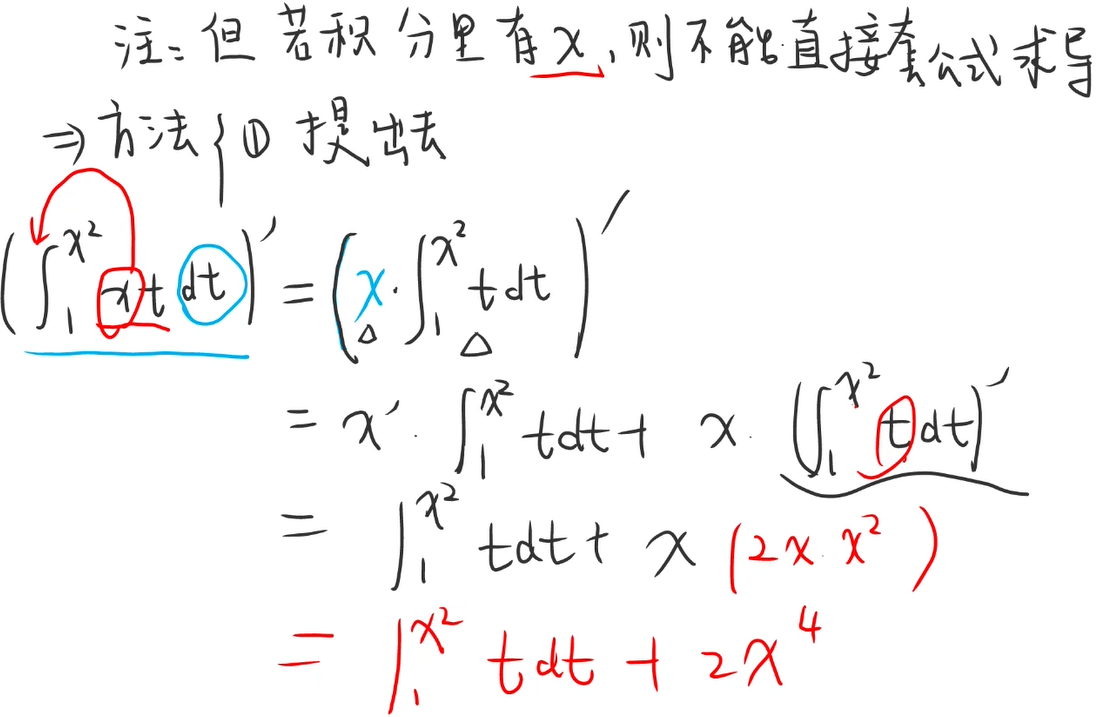 注：但若积分里有x，则不能直接套公式求导
⇒ 方法 { ① 提出去
(∫₁^{x²} xt dt)′ = (x·∫₁^{x²} t dt)′
= x′·∫₁^{x²} tdt + x·(∫₁^{x²} t dt)′
= ∫₁^{x²} tdt + x (2x·x²)
= ∫₁^{x²} t dt + 2x⁴